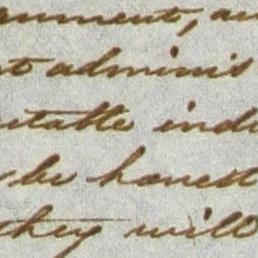 ernment, an
t adminis
ntable ind
be honest
they will